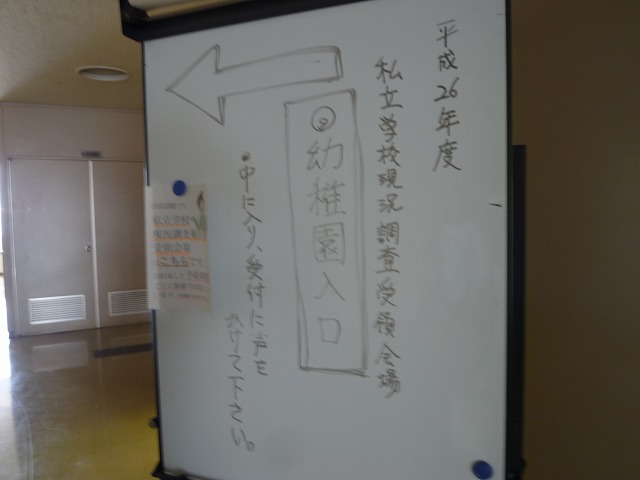 平成26年度
私立学校現況調査受領会場
幼稚園入口
・中に入り、受付に声を
かけて下さい。
私立学校
実民調査票
受領会場
はこちらです。